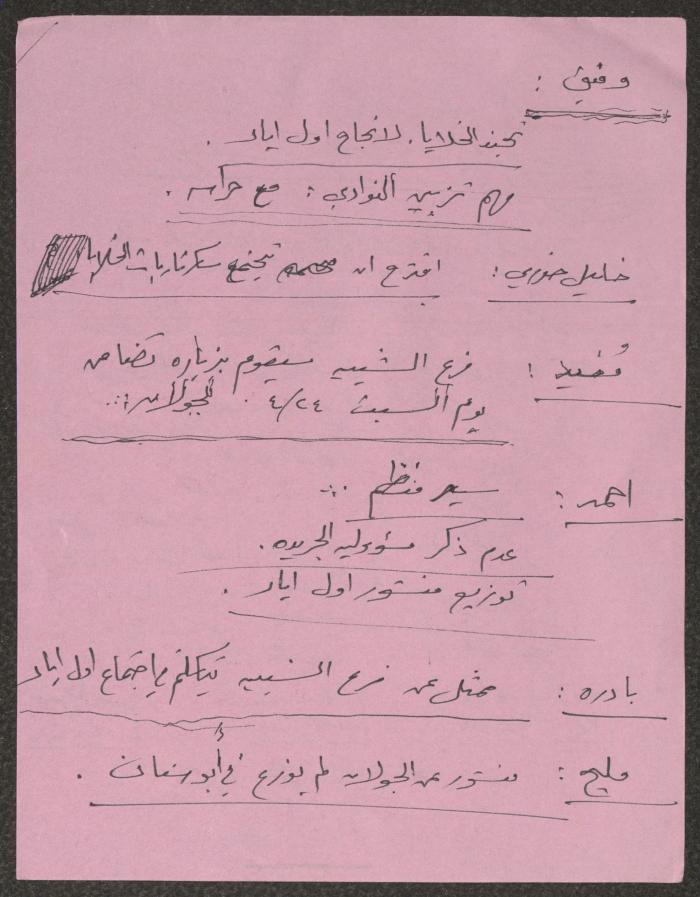 وفيق :
تجنيد الخلايا، لانجاح اول ايار .
مهم تزيين النوادي : مع حراسه .
خليل خوري : اقترح ان تجتمع سكرتاريات الخلايا
مفيد : فرع الشبيبه سيقوم بزياره تضامن
يوم السبت ٤/٢٤ . للجولان
احمد : سير منظم
عدم ذكر مسؤوليه الجريده .
توزيع منشور اول ايار .
بادره : ممثل عن فرع الشبيبه يتكلم في اجتماع اول ايار
مليح : منشور عن الجولان لم يوزع في أبو سنان .